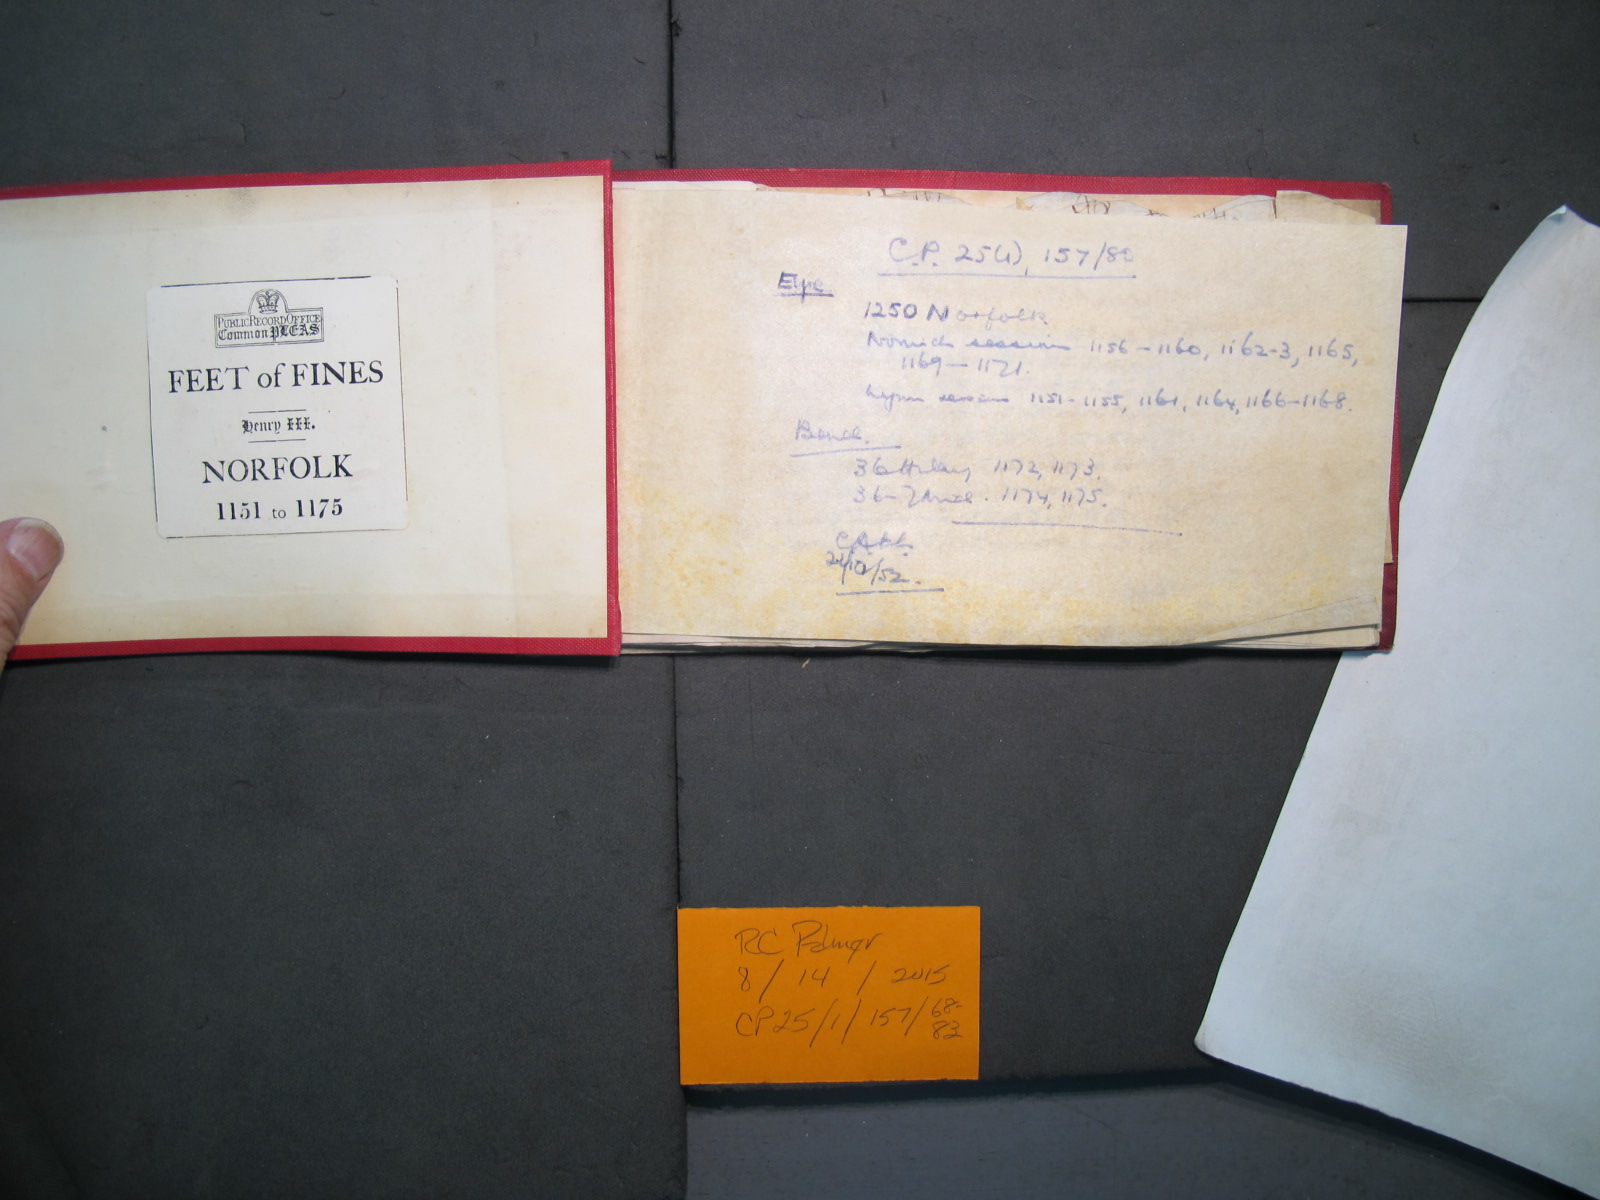 PUBLIC RECORD OFFICE
Common PLEAS
FEET of FINES
Henry III.
NORFOLK
1151 to 1175
C.P. 25(1), 157/80
Eyre
1250 Norfolk
Norwich sessions 1156-1160, 1162-3, 1165,
1169-1171.
Lynn sessions 1151-1155, 1161, 1164, 1166-1168.
Bench.
36 Hilary 1172, 1173.
36- 1174, 1175.
/10/52.
RC Palmer
8/14/2015
CP25/1/157/68-
83